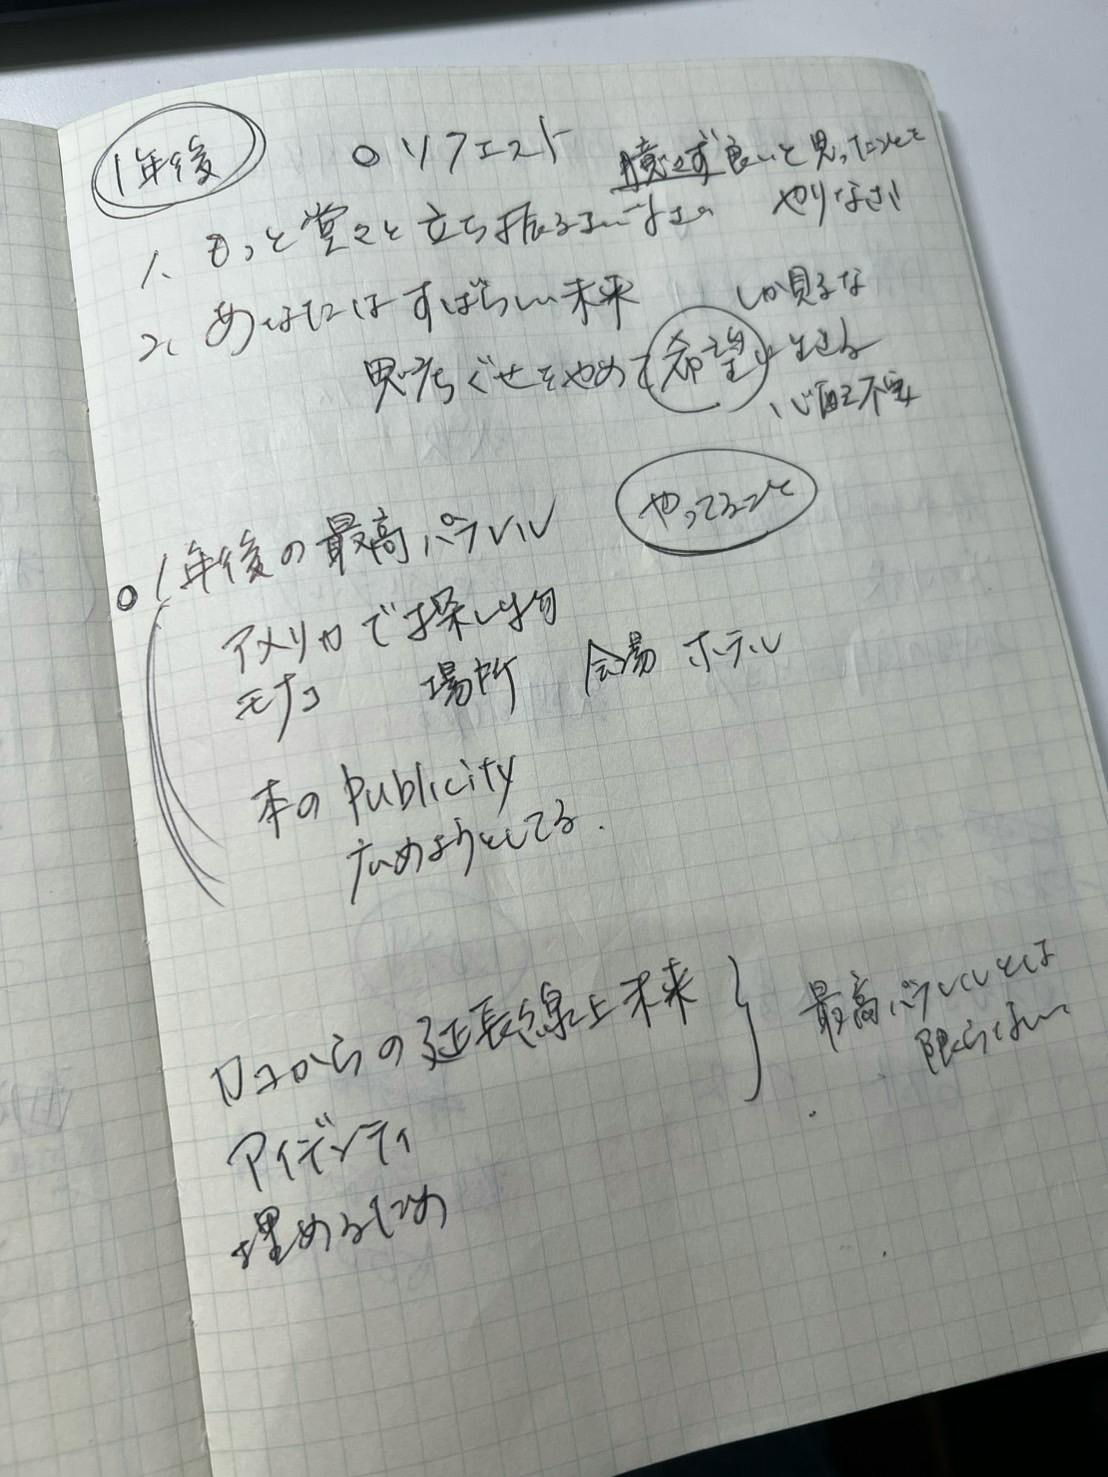 1年後
○ リクエスト
臆せず良いと思ったことを
やりなさい
1、もっと堂々と立ち振るまいなさい
2、あなたはすばらしい未来
しか見るな
思考ぐせをやめて希望に生きる
心配不安
やってること
○1年後の最高パラレル
アメリカで探し
モナコ 場所 会場 ホテル
本のPublicity
広めようとしてる.
からの延長線上未来
最高パラレルとは
限らない
アイデンティ
埋めるため